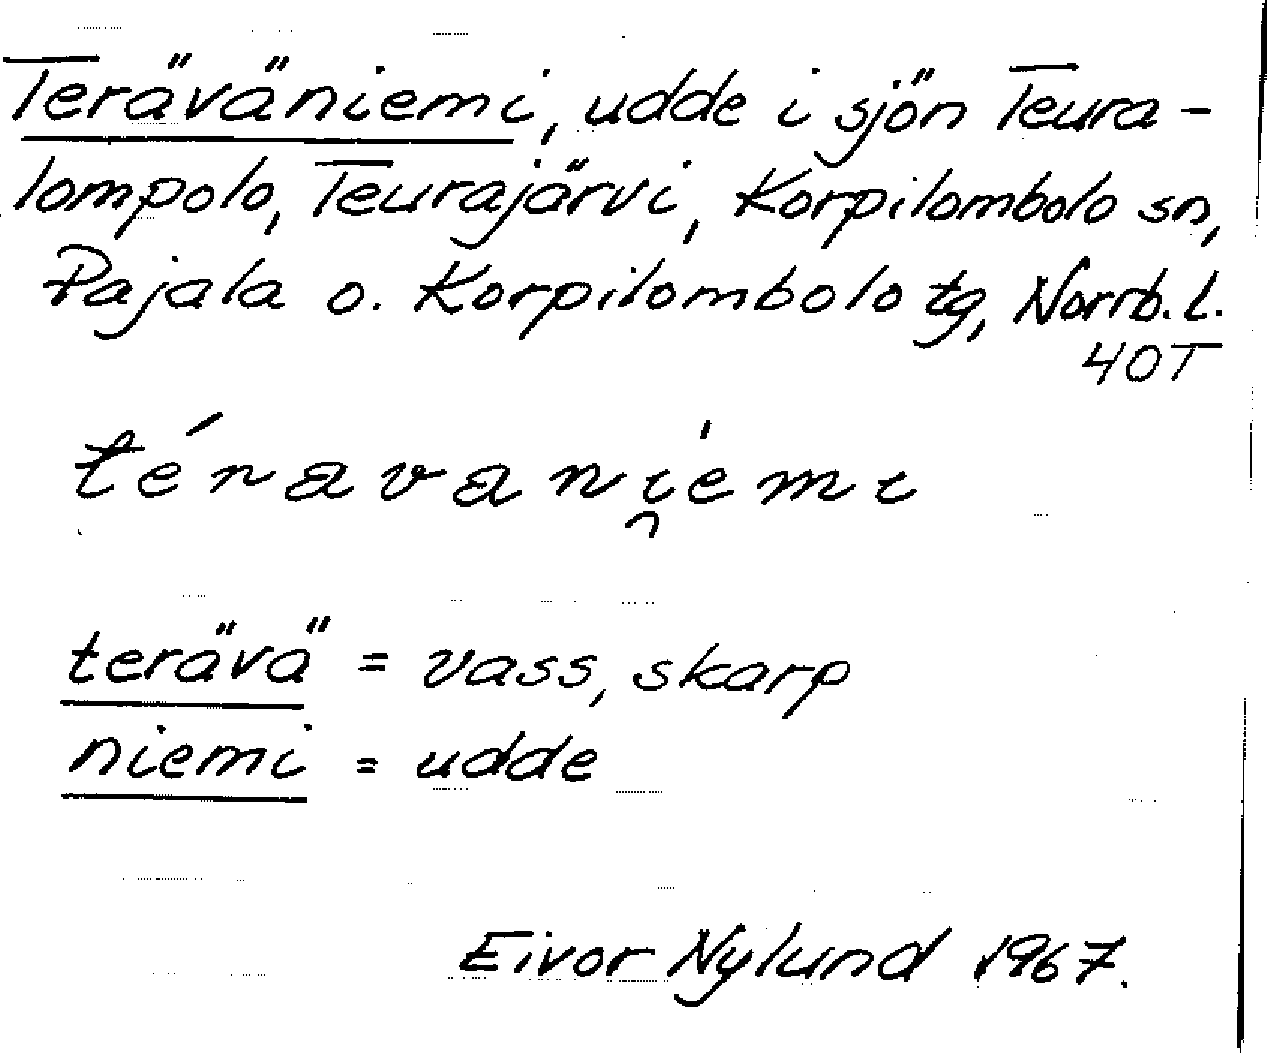 Teräväniemi, udde i sjön Teura-
lompolo, Teurajärvi, Korpilombolo sn,
Pajala o. Korpilombolo tg, Norrb. l.
40T
téravani̯emi
terävä = vass, skarp
niemi = udde
Eivor Nylund 1967.